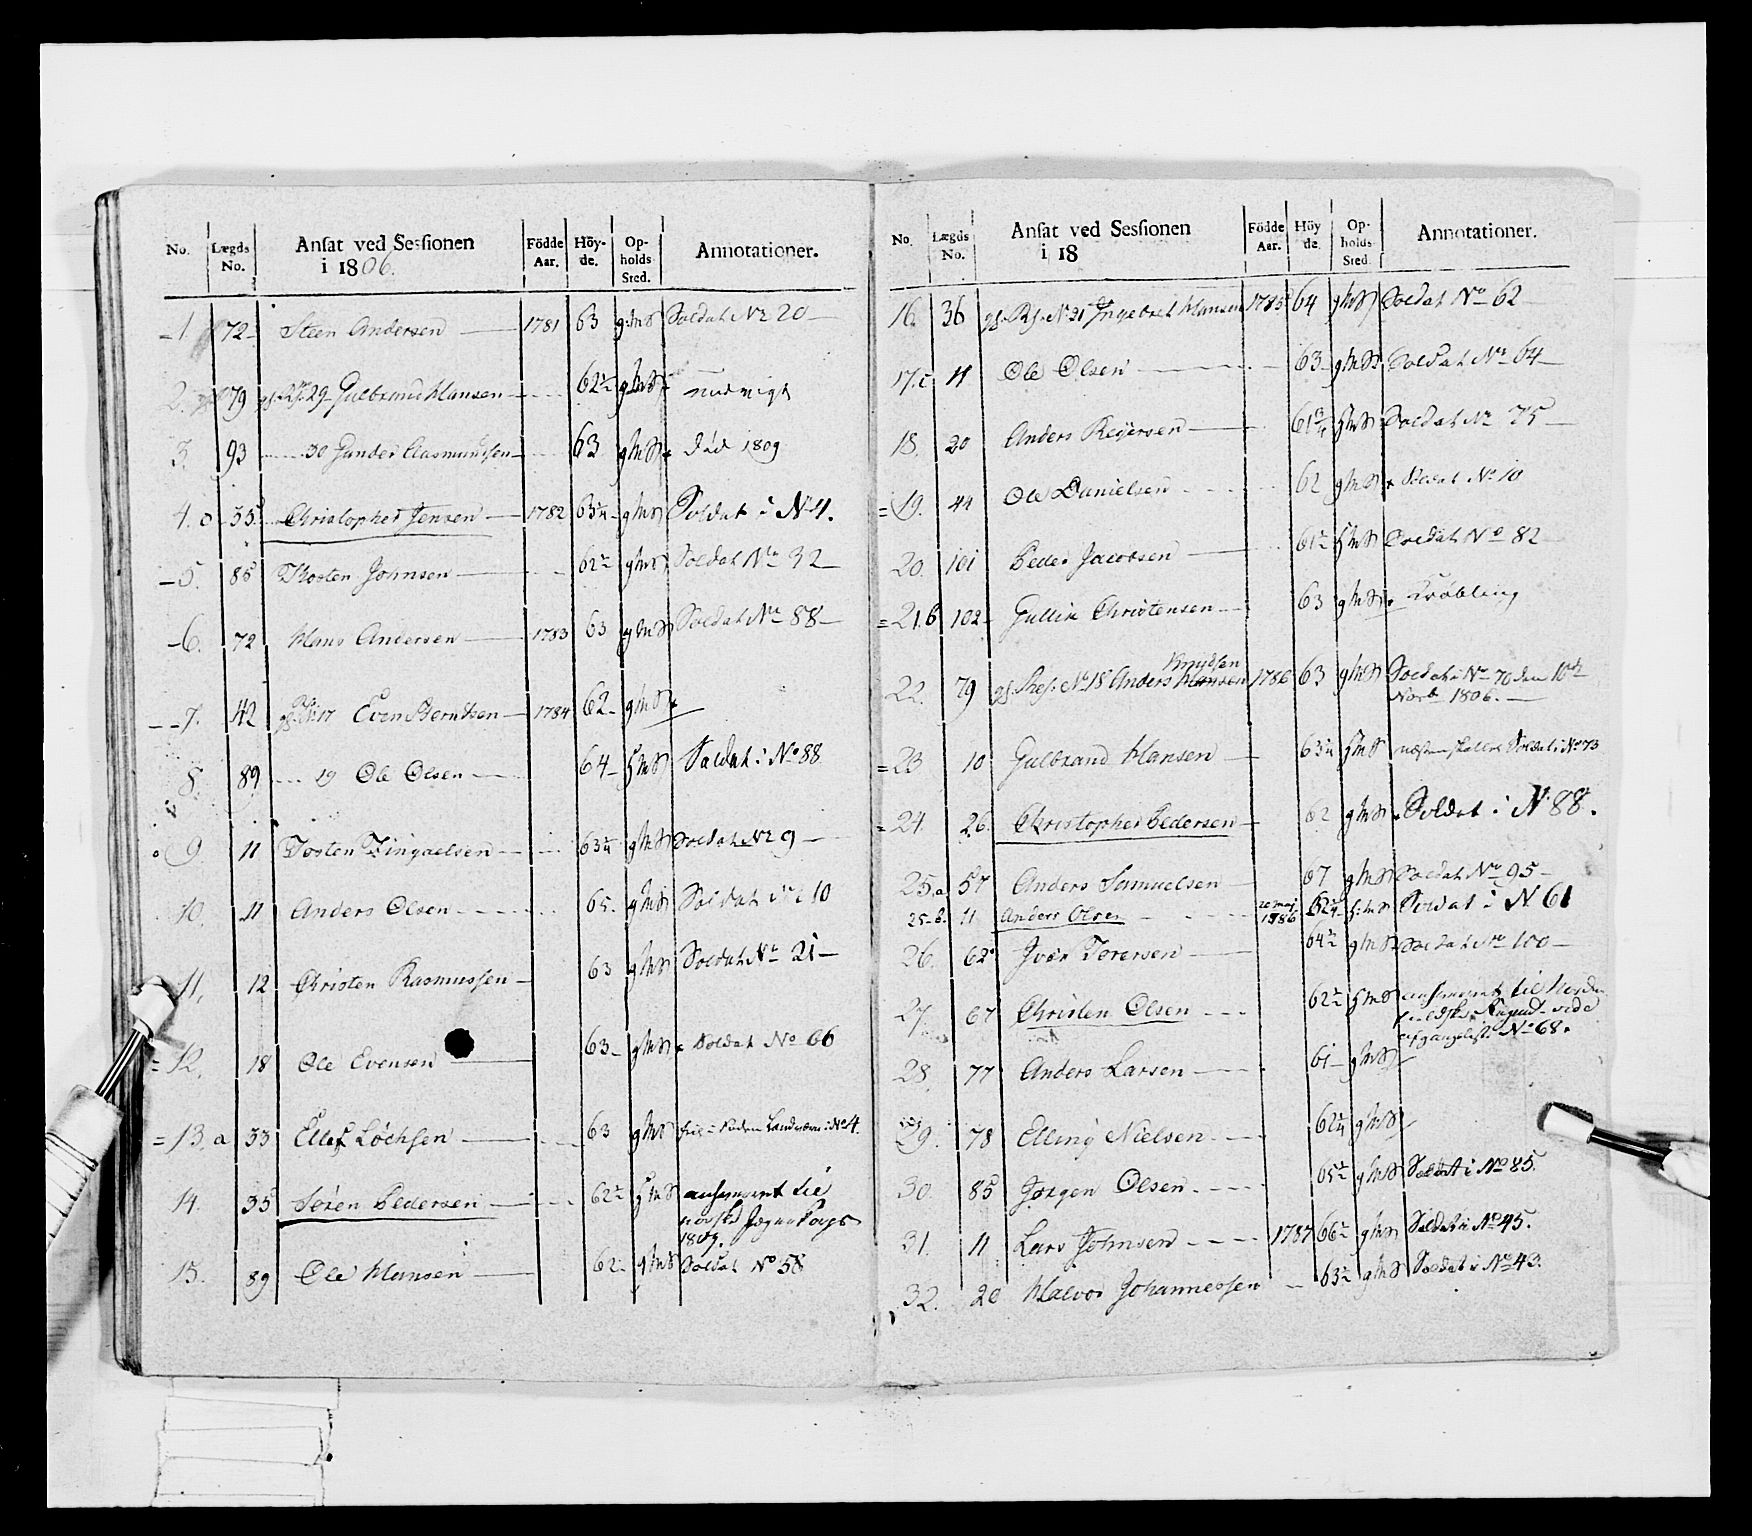 No. Lægds No. Ansat ved Sessionen i 1806. Födde Aar. Höy-de. Op-holds Sted. Annotationer.
1. 72 Steen Andersen 1781 63 gMS Soldat No 20
2. 79 29 Gulbrand Hansen 62½ gMS
3. 93 30 Gunder Aasmundsen 63 gMS død 1809
4. 55 Christopher Jensen 1782 63¼ gMS Soldat i No 4.
5. 85 Thosten Johnsen 62½ gMS Soldat No 32
6. 72 Hans Andersen 1783 63 gMS Soldat No 88
7. 42 17 Even Berntsen 1784 62 gMS
8. 89 19 Ole Olsen 64 gMS Soldat i No 88
9 11 Tosten Tingaelsen 63¼ gMS Soldat No 9
10. 11 Anders Olsen 65 gMS Soldat No 10
11. 12 Christen Rasmussen 63 gMS Soldat No 21
12. 18 Ole Evensen 63 gMS Soldat No 66
13. a 33 Ellef Löchsen 63 gMS No 4.
14. 35 Sören Pedersen 62½ gMS ansfærnet til
norske Jæger Corps
1809.
15. 89 Ole Hansen 62 gMS Soldat No 58
No. Lægds No. Ansat ved Sessionen i 18 Födde Aar. Höy de. Op-holds Sted. Annotationer.
16. 36 No 21 Ingebret Hansen 1785 64 gMS Soldat No 62
17. c 11 Ole Olsen 63 gMS Soldat No 64
18. 20 Anders Reyersen 61¾ gMS Soldat No 75
19. 44 Ole Danielsen 62 gMS Soldat No 10
20. 101 Peder Jacobsen 61½ gMS Soldat No 82
21. b 102 Gullik Christensen 63 gMS Krøbling
Knudsen
22. 79 No 18 Anders Hansen 1786 63 gMS Soldat i No 70 den 10de
Novb 1806.
23 10 Gulbrand Hansen 63¼ gMS Soldat i No 73
24. 26 Christopher Pedersen 62 gMS Soldat i No 88.
25. a 57 Anders Samuelsen 67 gMS Soldat No 95
25-b. 11 Anders Olsen 20 maj 1786 62¼ gMS Soldat i No 61
26. 62 Iver Torersen 64½ gMS Soldat No 100
27. 67 Christen Olsen 62½ gMS til Norden
vide
No 68.
28. 77 Anders Larsen 61 gMS
29. 78 Elling Nielsen 62¼ gMS
30. 85 Jørgen Olsen 65½ gMS Soldat i No 85.
31. 11 Lars Johnsen 1787 66½ gMS Soldat i No 45.
32. 20 Halvor Johannessen 63½ gMS Soldat i No 43.